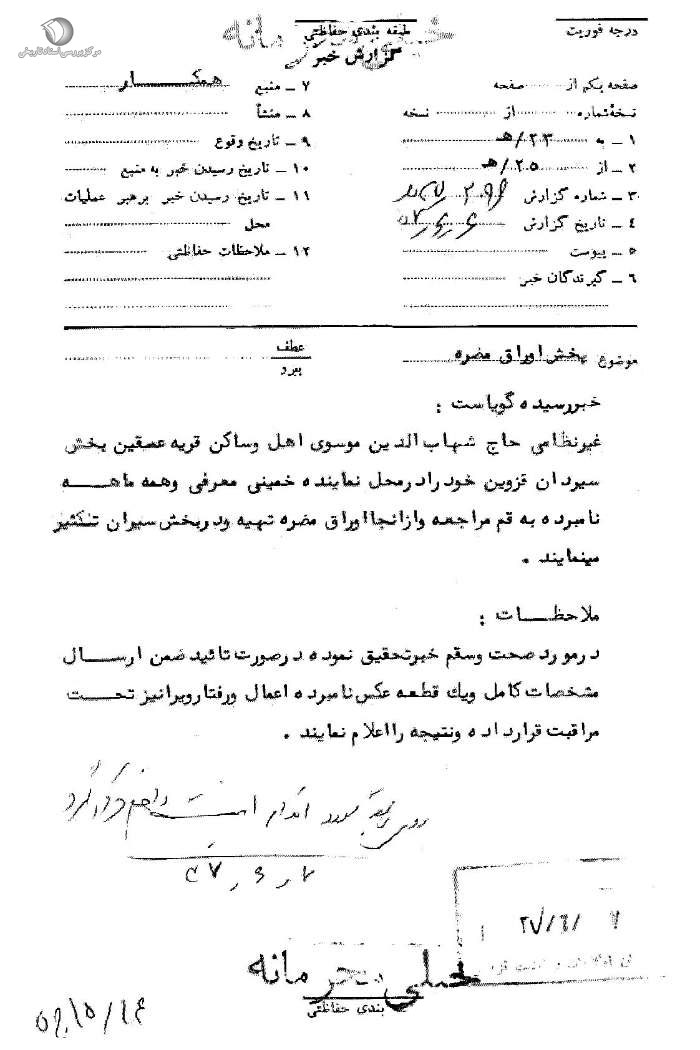 مرکز بررسی اسناد تاریخی
درجه فوریت
طبقه بندی حفاظتی
خیلی محرمانه
گزارش خبر
صفحه یکم از صفحه
نسخهٔ شماره از نسخه
۱ ـ به ۲۳/هـ
۲ ـ از ۲۵/هـ
۳ ـ شماره گزارش
۴ ـ تاریخ گزارش
۵ ـ پیوست
۶ ـ گیرندگان خبر
۷ ـ منبع همکــار
۸ ـ منشأ
۹ ـ تاریخ وقوع
۱۰ ـ تاریخ رسیدن خبر به منبع
۱۱ ـ تاریخ رسیدن خبر برهبر عملیات
محل
۱۲ ـ ملاحظات حفاظتی
موضوع پخش اوراق مضره
عطف
پیرو
خبر رسیده گویاست :
غیرنظامی حاج شهاب الدین موسوی اهل وساکن قریه عصقین بخش
سیردان قزوین خود رادرمحل نماینده خمینی معرفی وهمه ماهــه
نامبرده به قم مراجعه وازانجا اوراق مضره تهیه ودربخش سیران تـکثیر
مینمایند .
ملاحظــات :
درمورد صحت وسقم خبرتحقیق نموده درصورت تائید ضمن ارســال
مشخصات کامل ویك قطعه عکس نامبرده اعمال ورفتارویرانیز تحــت
مراقبت قرارداده ونتیجه را اعلام نمایند .
خیلی محرمانه
بندی حفاظتی